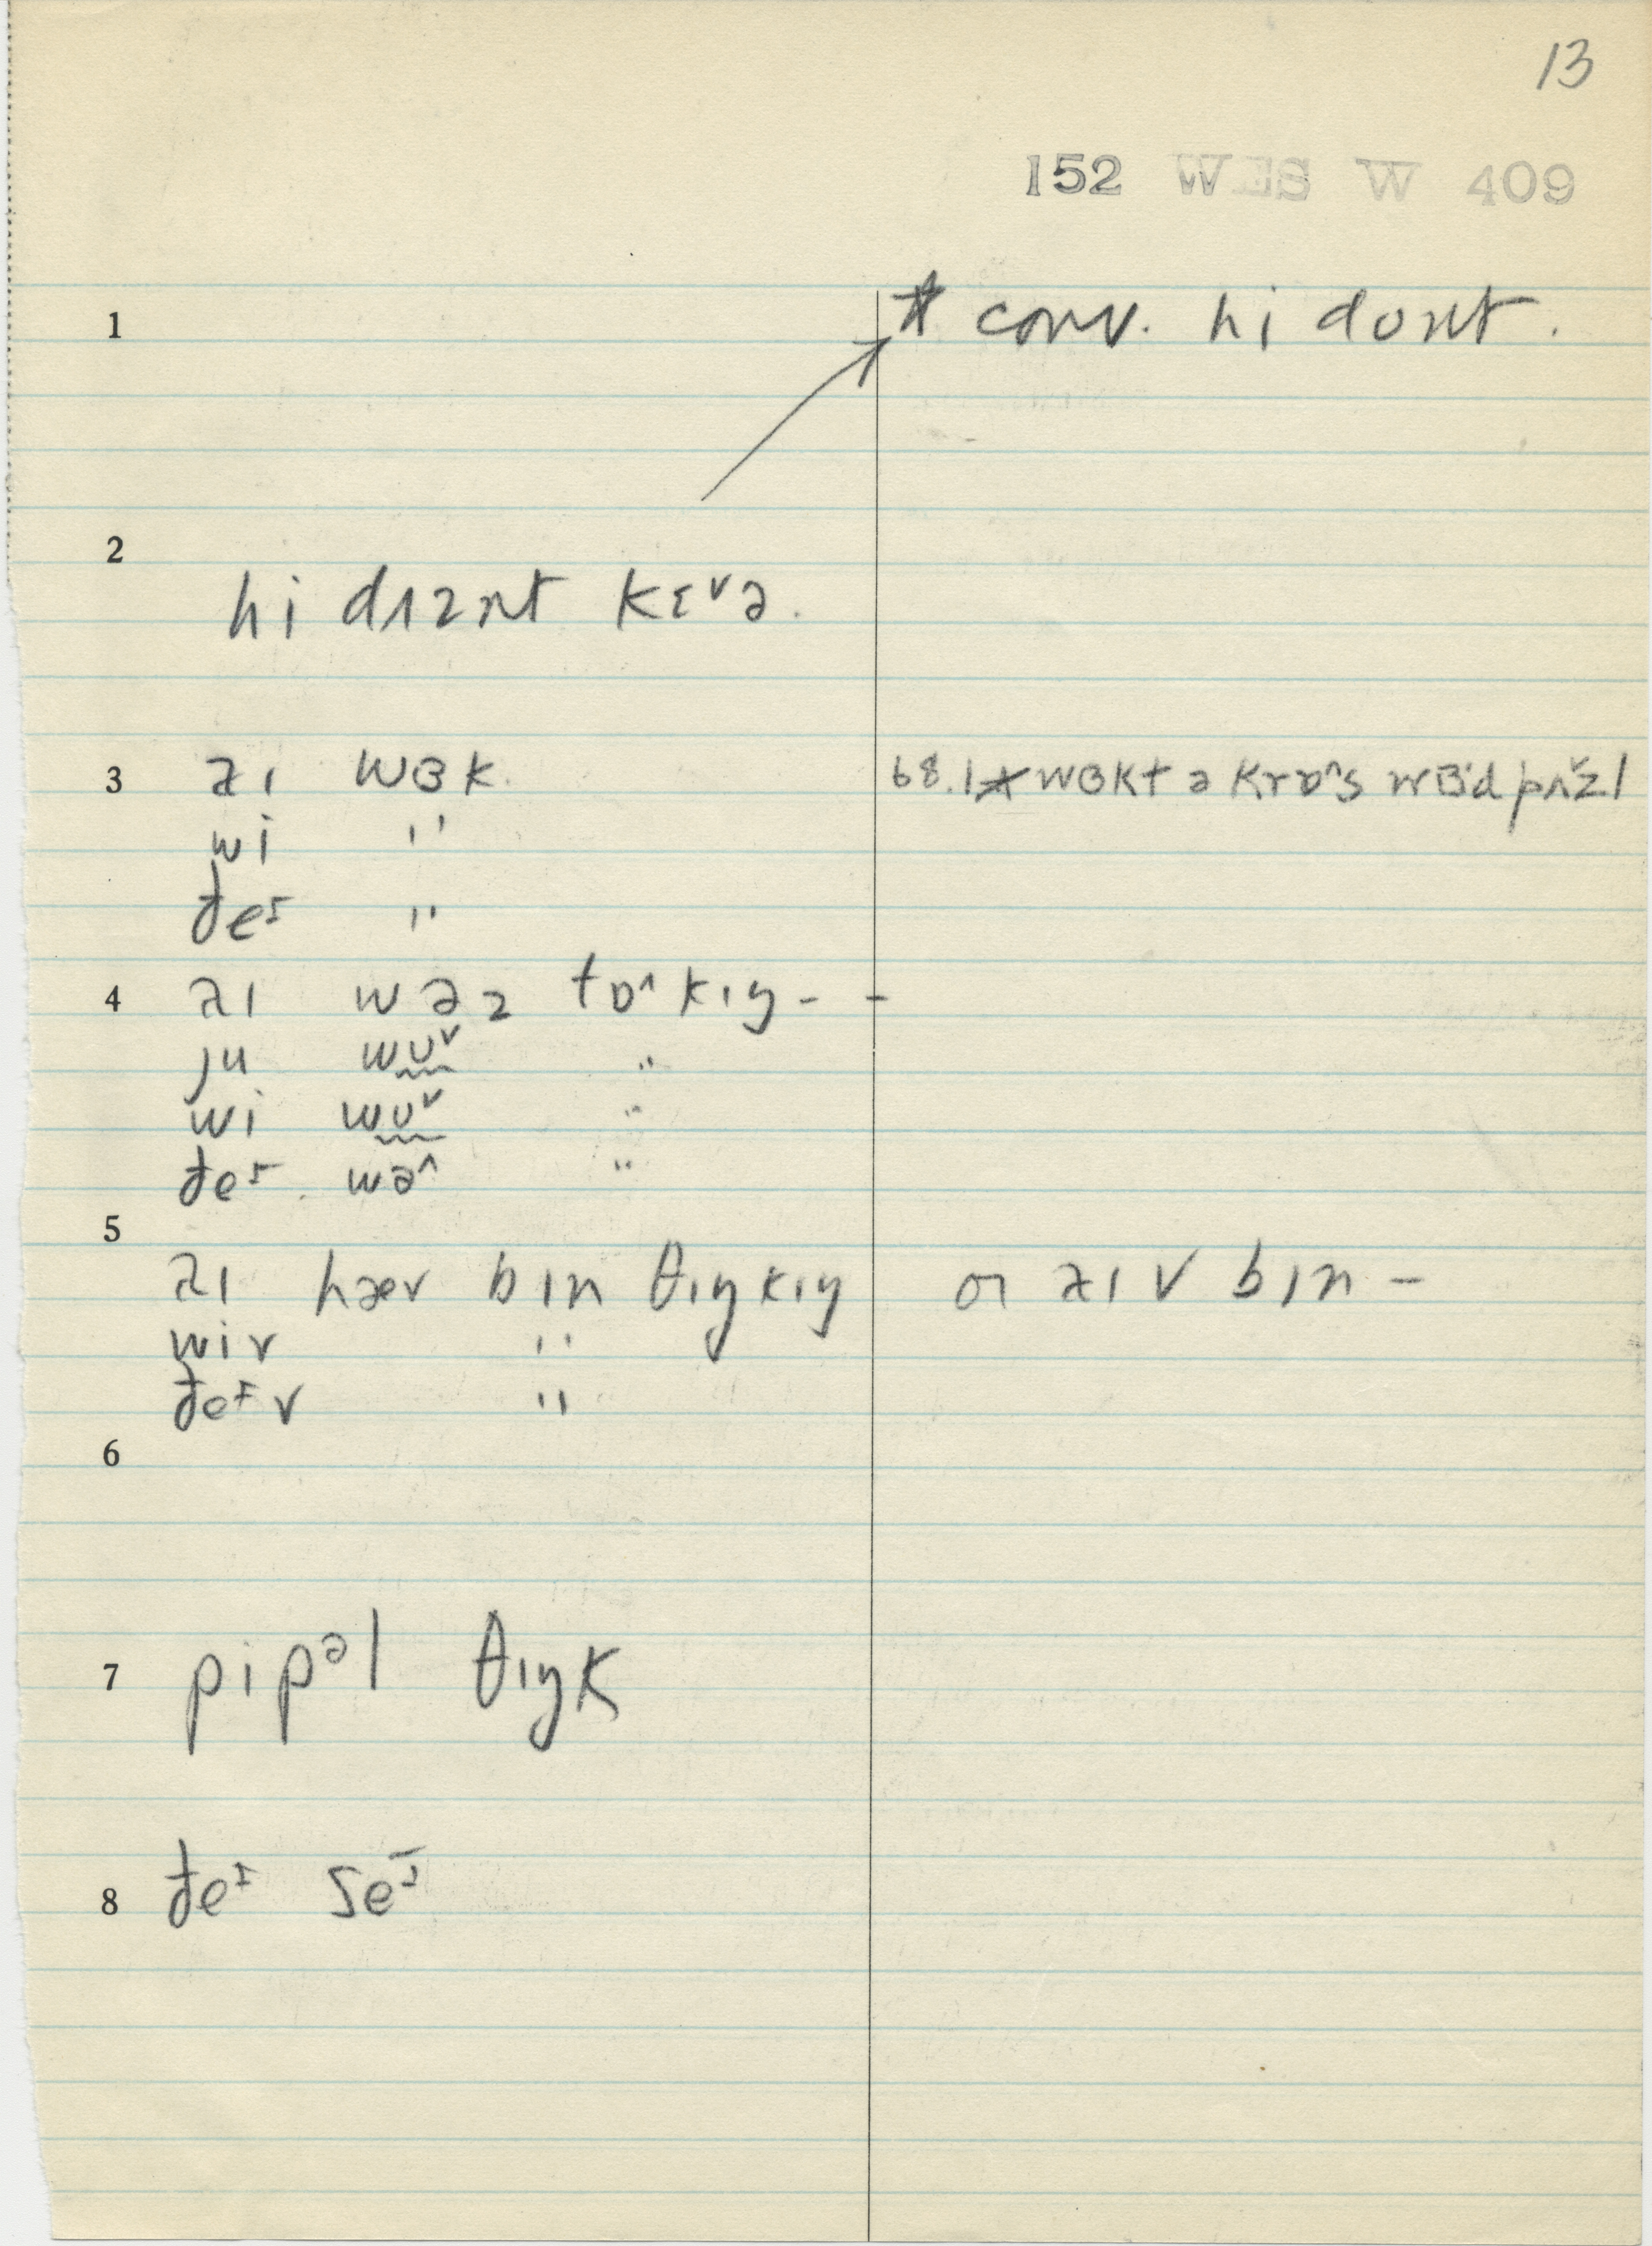 13
152 WES W 409
1 * conv. hi dont.
2
hi dʌznt kɛ˅ə.
3 aɪ wɜk. 68.1* wɜkt ə krɒ^s wɜd pʌzl
wi "
ðeɪ "
4 aɪ wəz tɒ^kɪŋ - -
ju wʊ˅ "
wi wʊ˅ "
ðeɪ. wə^ "
5
aɪ hæv bɪn θɪŋkɪŋ or aɪv bɪn -
wiv "
ðeɪv "
6
7 pipəl θɪŋk
8 ðeɪ seɪ